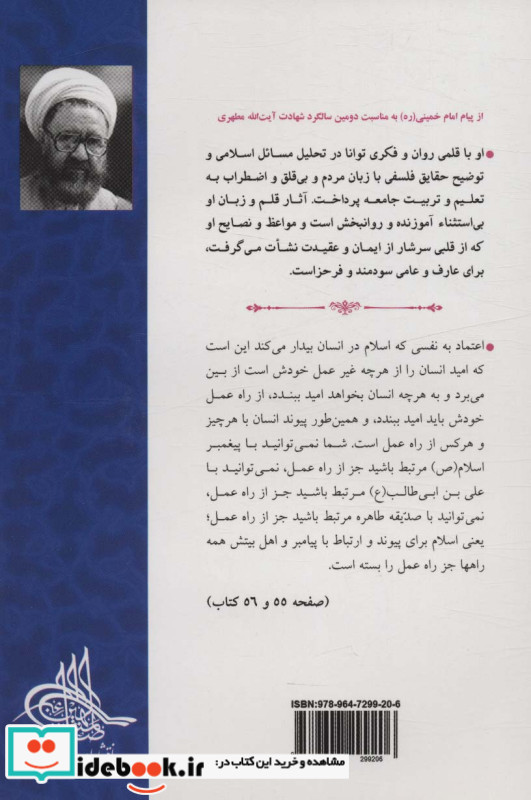 از پیام امام خمینی(ره) به مناسبت دومین سالگرد شهادت آیت‌الله مطهری
● او با قلمی روان و فکری توانا در تحلیل مسائل اسلامی و
توضیح حقایق فلسفی با زبان مردم و بی‌قلق و اضطراب به
تعلیم و تربیت جامعه پرداخت. آثار قلم و زبان او
بی‌استثناء آموزنده و روانبخش است و مواعظ و نصایح او
که از قلبی سرشار از ایمان و عقیدت نشأت می‌گرفت،
برای عارف و عامی سودمند و فرحزاست.
● اعتماد به نفسی که اسلام در انسان بیدار می‌کند این است
که امید انسان را از هرچه غیر عمل خودش است از بین
می‌برد و به هرچه انسان بخواهد امید ببندد، از راه عمل
خودش باید امید ببندد، و همین‌طور پیوند انسان با هرچیز
و هرکس از راه عمل است. شما نمی‌توانید با پیغمبر
اسلام(ص) مرتبط باشید جز از راه عمل، نمی‌توانید با
علی بن ابی‌طالب(ع) مرتبط باشید جز از راه عمل،
نمی‌توانید با صدّیقه طاهره مرتبط باشید جز از راه عمل؛
یعنی اسلام برای پیوند و ارتباط با پیامبر و اهل بیتش همه
راهها جز راه عمل را بسته است.
(صفحه ۵۵ و ۵۶ کتاب)
ISBN:978-964-7299-20-6
299206
idebook.ir
مشاهده و خرید این کتاب در: